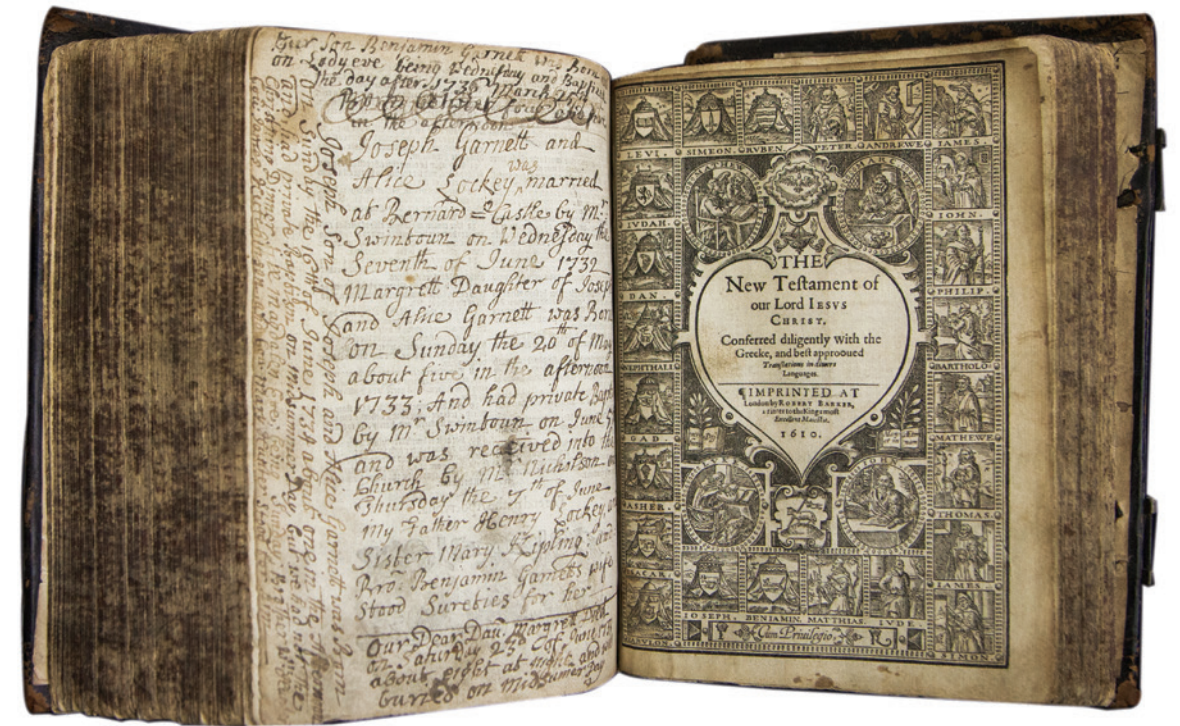 Our Son Benjamin Garnett was Born
on Lady eve being Wednesday and Baptised
the day after 1736 March 25th
four
in the afternoon
Joseph Garnett and
was
Alice Lockey married
at Bernard = Castle by Mr
Swintoun on Wednesday the
Seventh of June 1732
Margrett Daughter of Joseph
and Alice Garnett was Born
on Sunday the 20th of May
about five in the afternoon
1733; And had private Bap
by Mr Swintoun on June 5
and was received into the
Church by Mr Nicholson on
Thursday the 7th of June
My Father Henry Lockey,
Sister Mary Kipling: and
Bro: Benjamin Garnets wife
Stood Sureties for her
Our Dear Dau: Margret Died
on Saturday 23d of June
about eight at night and was
buried on Midsumer Day
Joseph Son of Joseph and Alice Garnett was born
on Sunday the 16th of June 1734 about one in the
and had private baptism on
LEVI. SIMEON. RVBEN. PETER. ANDREWE IAMES.
MARC
IVDAH. IOHN.
DAN. PHILIP.
NEPHTHALI BARTHOLO-
GAD MATHEWE
ASHER. THOMAS.
IOHN
ISACAR. IAMES
ZABVLON. IOSEPH. BENIAMIN. MATTHIAS. IVDE. SIMON.
THE
New Testament of
our Lord IESVS
CHRIST.
Conferred diligently with the
Greeke, and best approoued
Translations in diuers
Languages.
¶ IMPRINTED AT
London by ROBERT BARKER,
Printer to the Kings most
Excellent Maiestie.
1610.
Cum Privilegio.